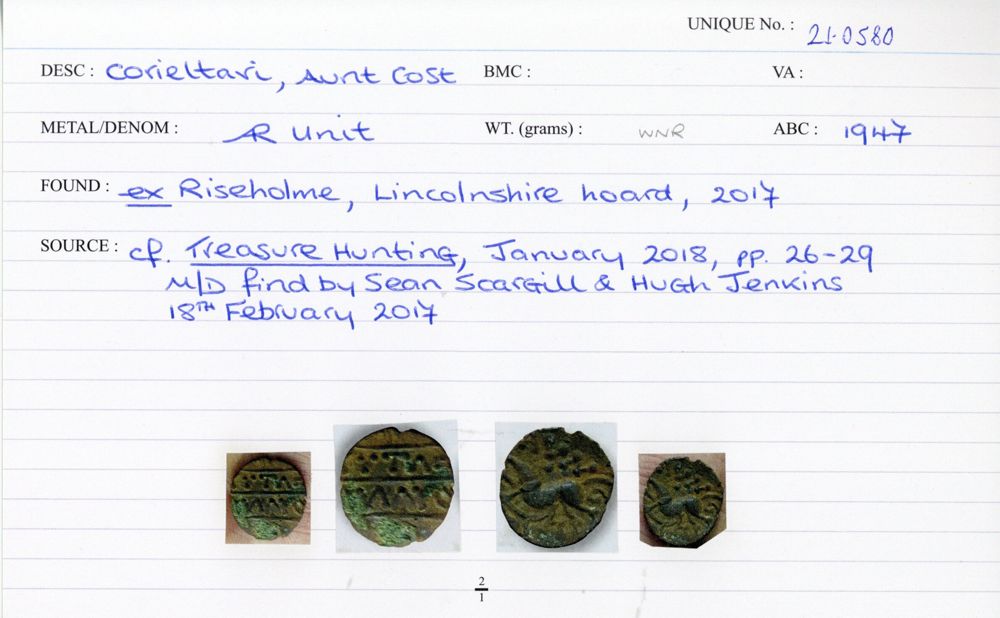 UNIQUE No. : 21.0580
DESC : Corieltavi, Aunt Cost BMC : VA :
METAL/DENOM : AR Unit WT. (grams) : WNR ABC : 1947
FOUND : ex Riseholme, Lincolnshire hoard, 2017
SOURCE : cf. Treasure Hunting, January 2018, pp. 26-29
M/D find by Sean Scargill & Hugh Jenkins
18TH February 2017
2
1